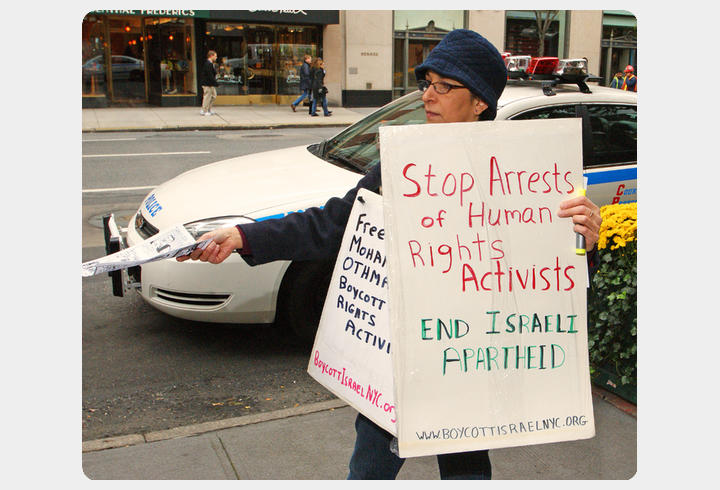 FREDERICS
POLICE
Free
MOHAM
OTHMA
BOYCOTT
RIGHTS
ACTIVI
BOYCOTTISRAELNYC.org
Stop Arrests
of Human
Rights
Activists
END ISRAELI
APARTHEID
WWW.BOYCOTTISRAELNYC.ORG